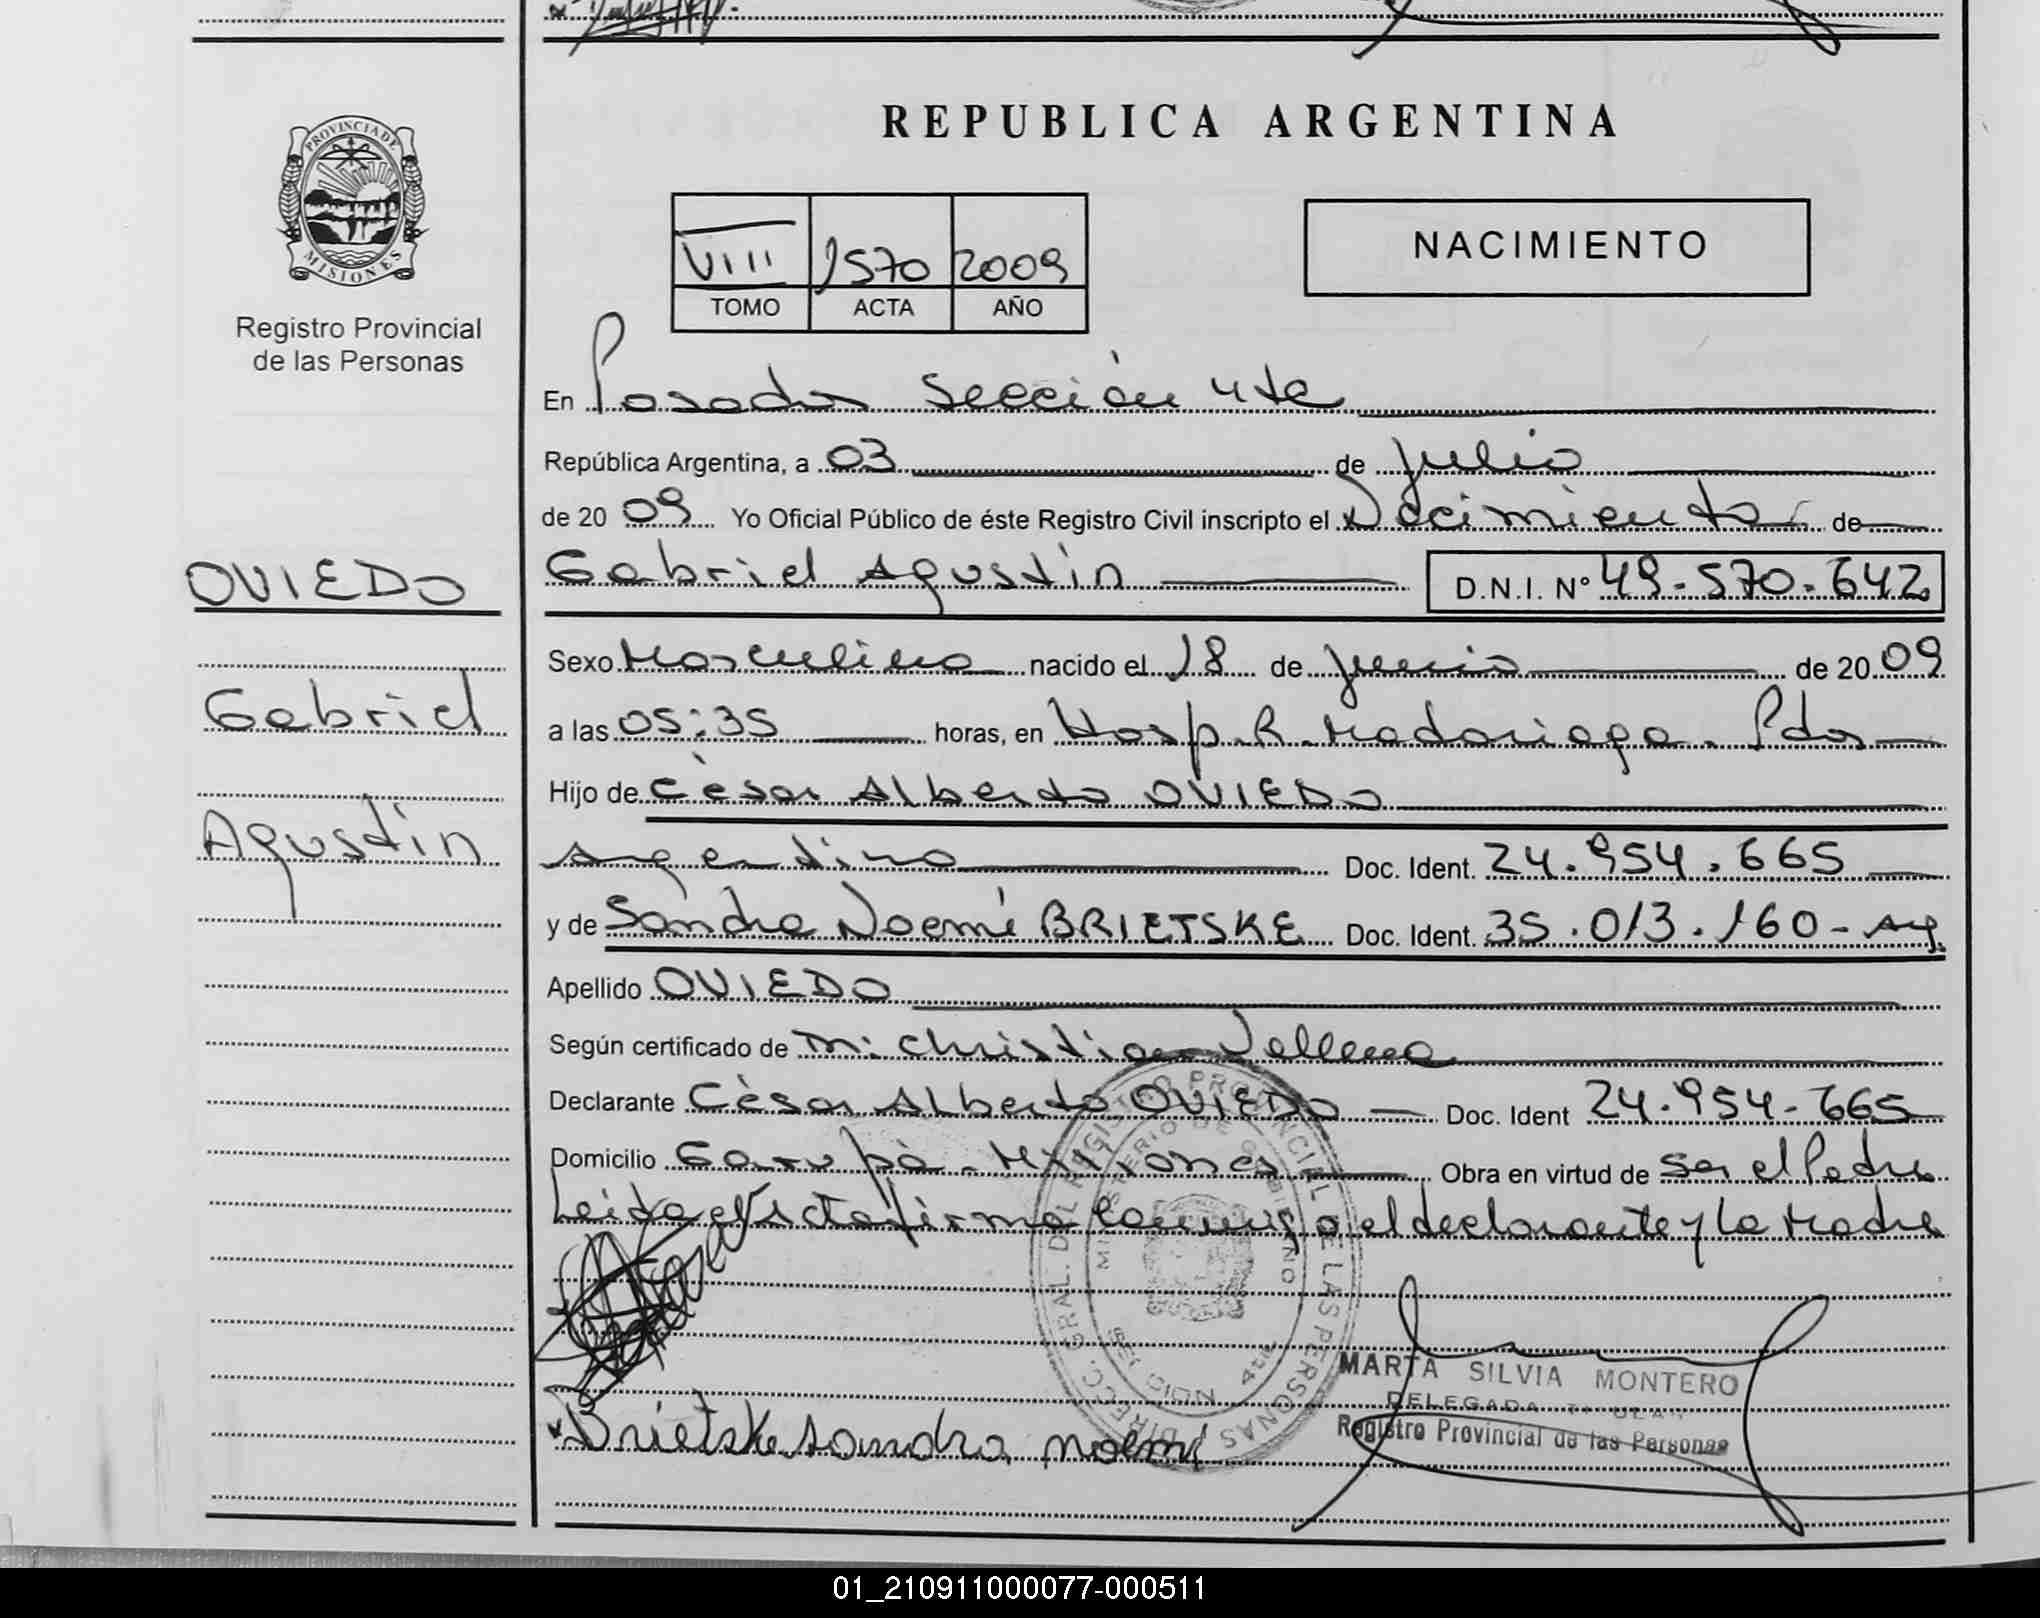 REPUBLICA ARGENTINA
PROVINCIA DE
MISIONES
Registro Provincial
de las Personas
VIII 1570 2009
TOMO ACTA AÑO
NACIMIENTO
En Posadas Sección 4ta
República Argentina, a 03 de Julio
de 20 09 Yo Oficial Público de éste Registro Civil inscripto el Nacimiento de
OVIEDO
Gabriel Agustín D.N.I. Nº 49-570-642
Sexo Masculino nacido el 18 de junio de 20 09
Gabriel
a las 05:35 horas, en Hosp. R. Madariaga. Pdas
Hijo de César Alberto OVIEDO
Agustín
Argentino Doc. Ident. 24.954.665
y de Sandra Noemí BRIETSKE Doc. Ident. 35.013.160 - Arg.
Apellido OVIEDO
Según certificado de M: Christian
Declarante César Alberto OVIEDO Doc. Ident 24.954-665
Domicilio Garupá - Misiones Obra en virtud de ser el Padre
Leida el Acta firma conmigo el declarante y la Madre
DIRECC. GRAL. DEL REGISTRO PROVINCIAL DE LAS PERSONAS
MINISTERIO DE GOBIERNO
SECCION 4ta
MARTA SILVIA MONTERO
DELEGADA TITULAR
Registro Provincial de las Personas
x Brietske sandra noemi
01_210911000077-000511